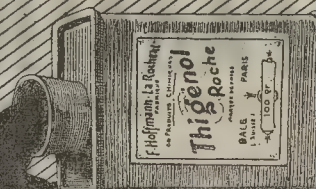 F. Hoffmann-La Roche & Cº
FABRIQUE
DE PRODUITS CHIMIQUES
Thigenol
Roche
MARQUE DÉPOSÉE
BALE PARIS
(SUISSE)
100 gr.